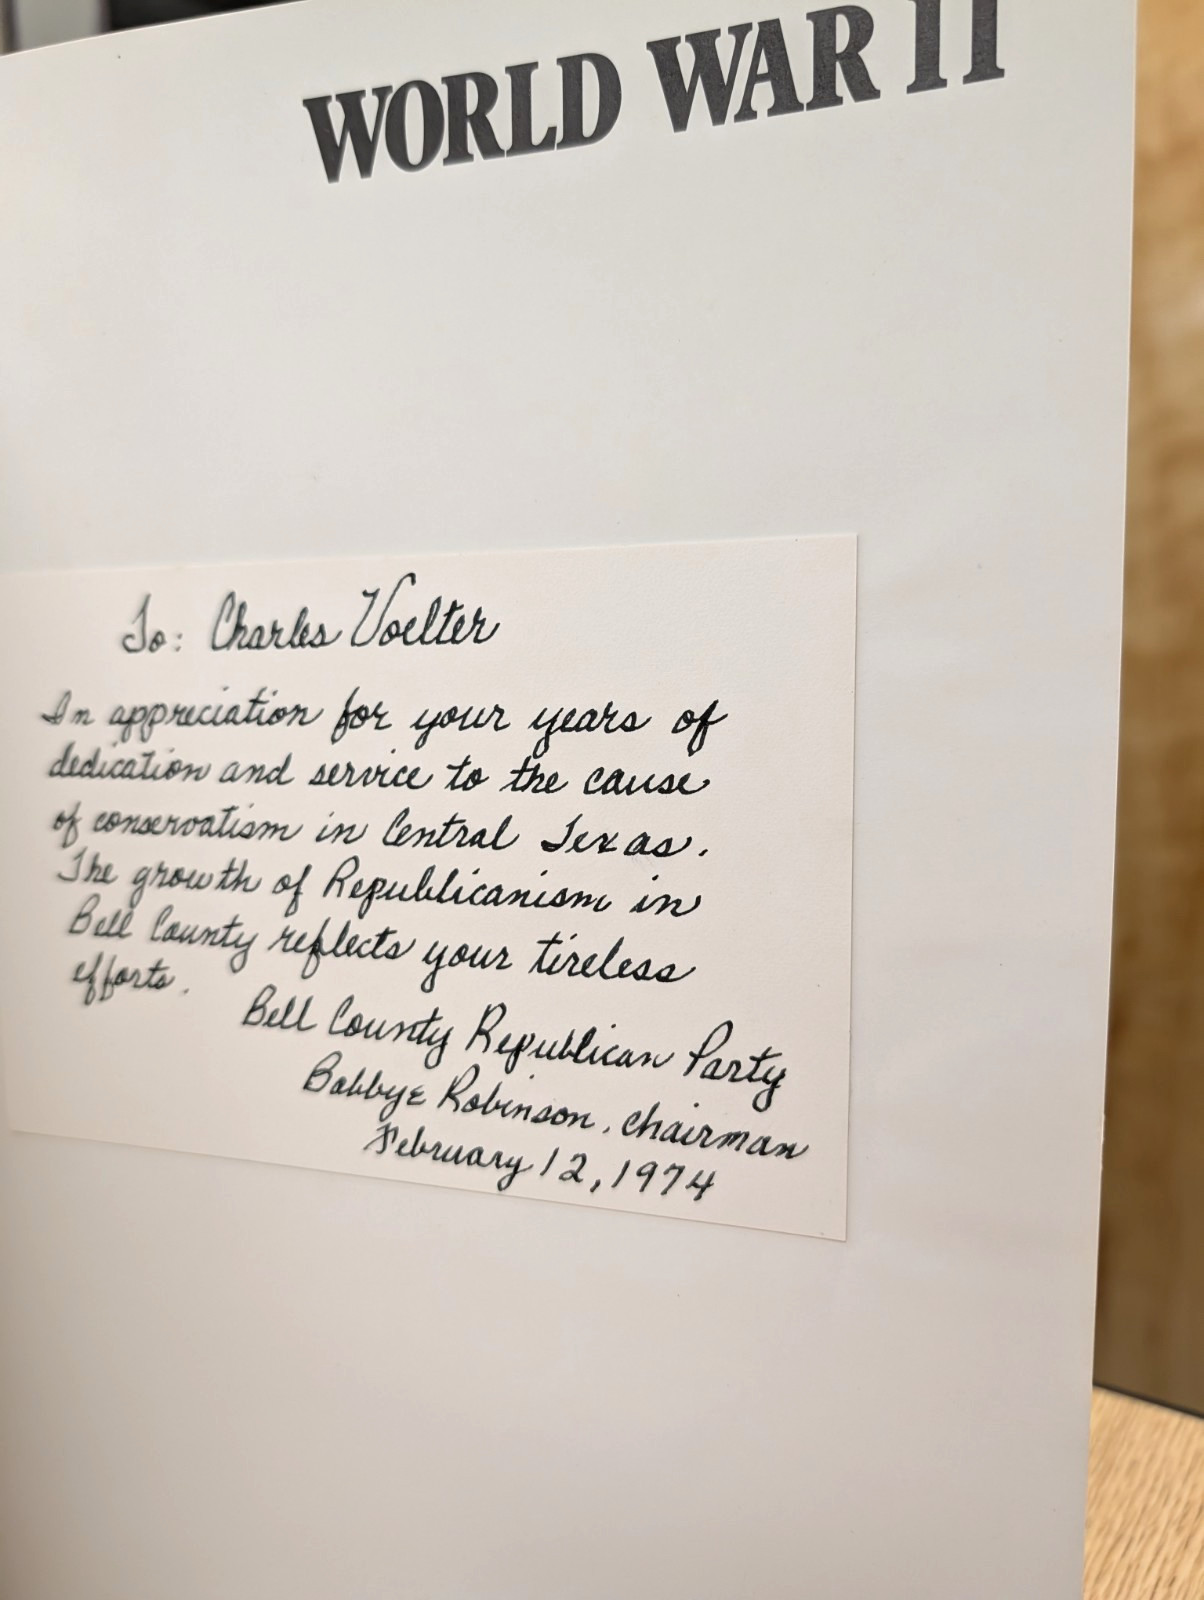 WORLD WAR II
To: Charles Voelter
In appreciation for your years of
dedication and service to the cause
of conservatism in Central Texas.
The growth of Republicanism in
Bell County reflects your tireless
efforts.
Bell County Republican Party
Bobbye Robinson, Chairman
February 12, 1974